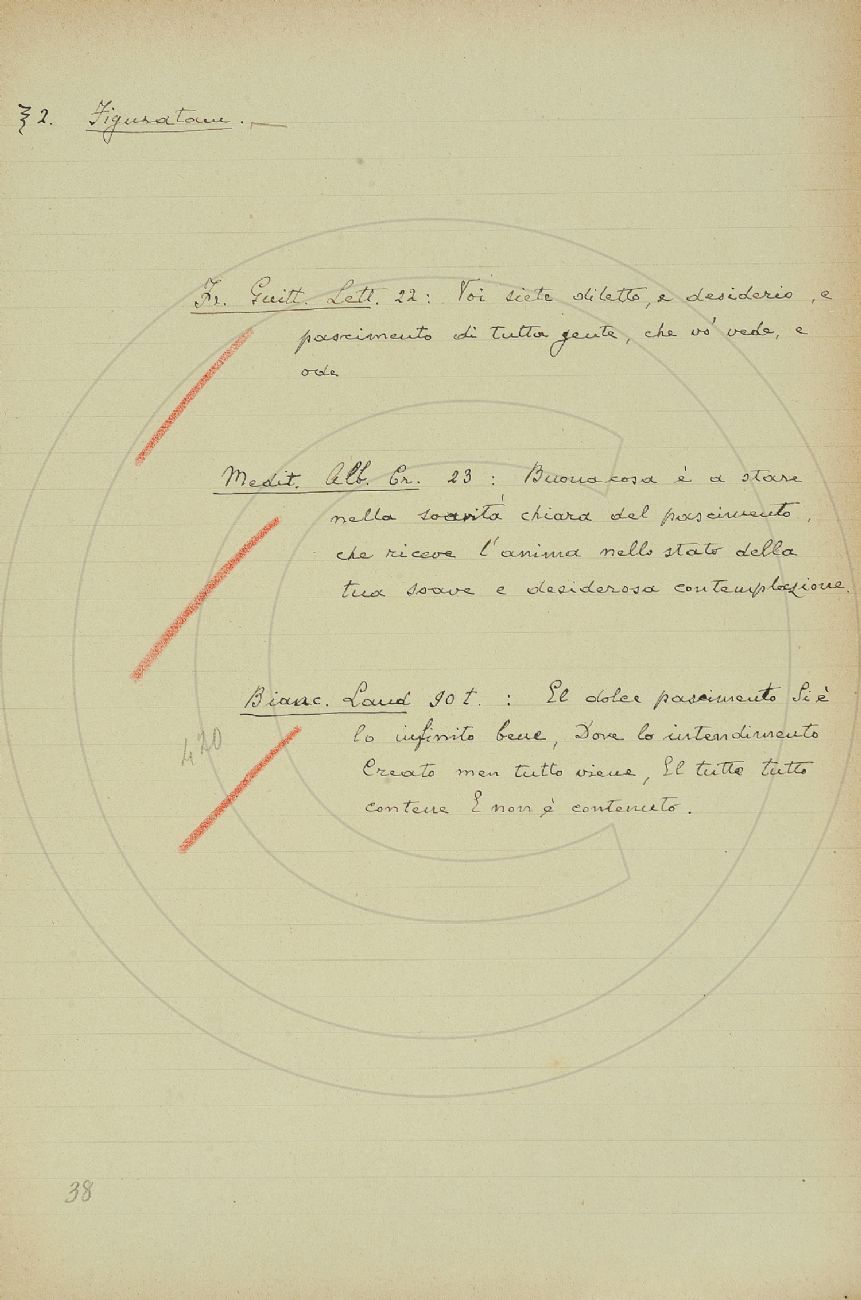 § 2. Figuratam. —
Fr. Guitt. Lett. 22: Voi siete diletto, e desiderio, e
pascimento di tutta gente, che vo' vede, e
ode
Medit. Alb. Cr. 23: Buona cosa è a stare
nella soavità chiara del pascimento,
che riceve l'anima nello stato della
tua soave e desiderosa contemplazione.
Bianc. Laud 90 t.: El dolce pascimento Si è
lo infinito bene, Dove lo intendimento
420
Creato men tutto viene, El tutto tutto
contene E non è contenuto.
38